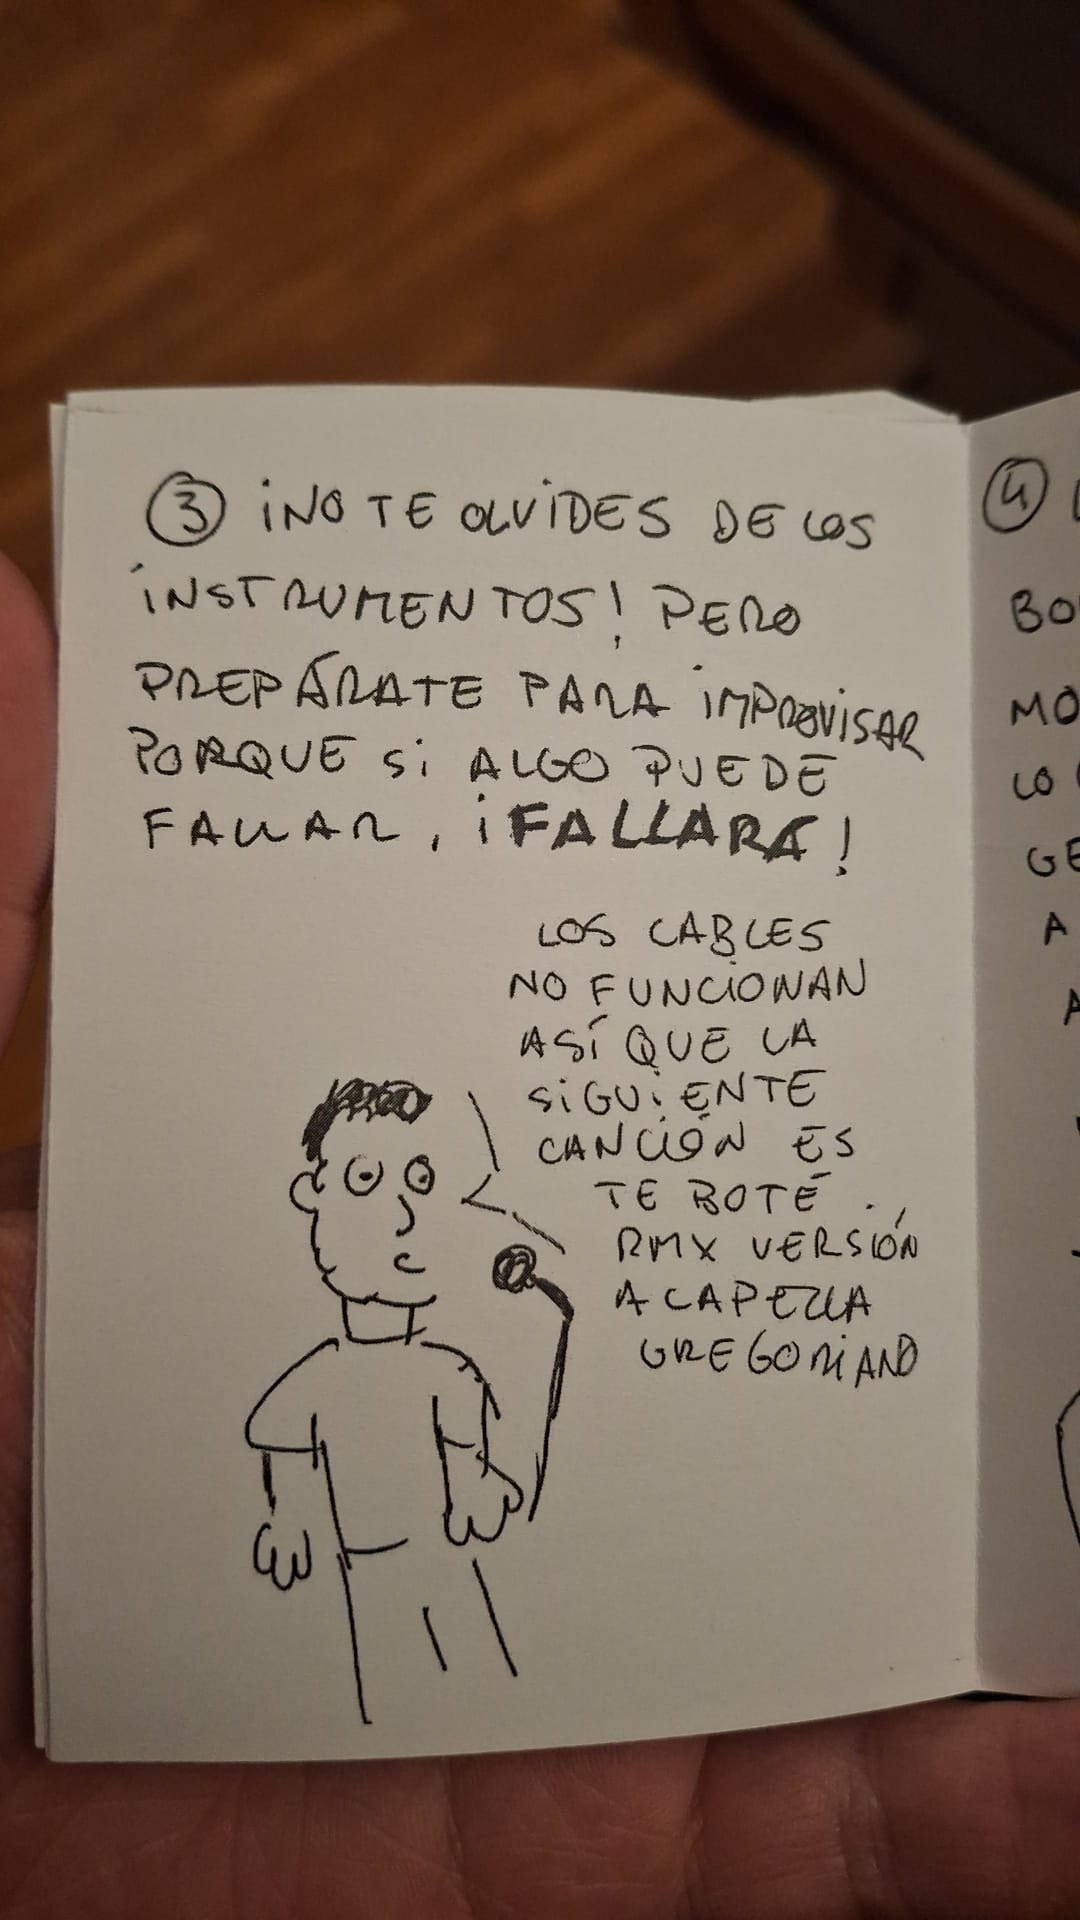 ③ ¡NO TE OLVIDES DE LOS
INSTRUMENTOS! PERO
PREPÁRATE PARA IMPROVISAR
PORQUE SI ALGO PUEDE
FALLAR, ¡FALLARÁ!
LOS CABLES
NO FUNCIONAN
ASÍ QUE LA
SIGUIENTE
CANCIÓN ES
TE BOTÉ
RMX VERSIÓN
A CAPELLA
GREGORIANO
④
BO
MO
LO
GE
A